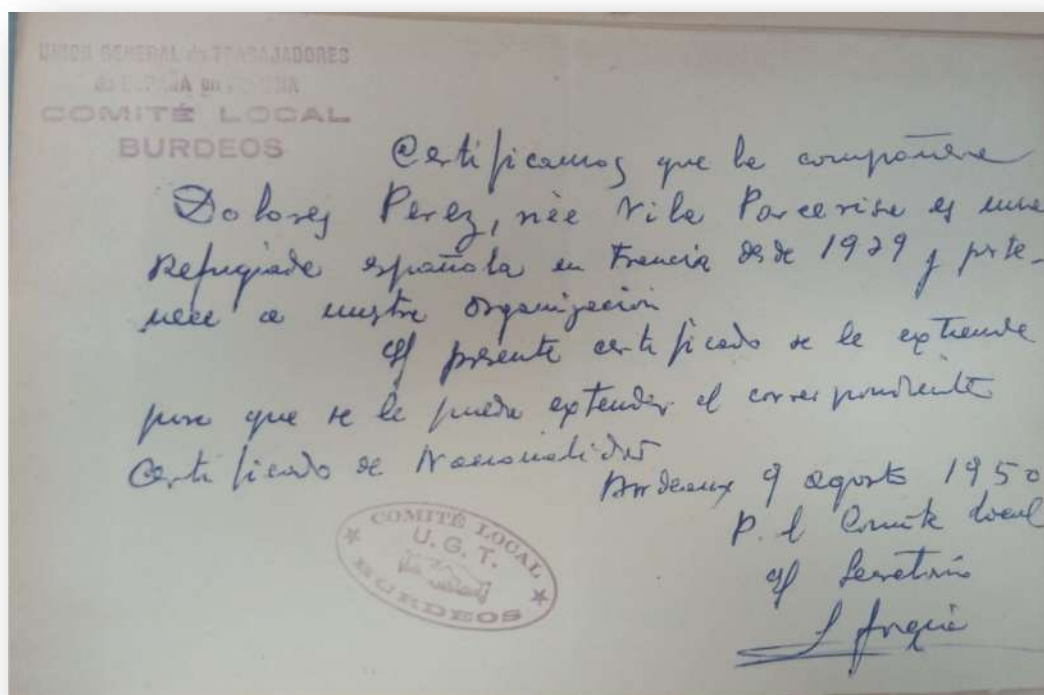 UNION GENERAL de TRABAJADORES
de ESPAÑA en
COMITÉ LOCAL
BURDEOS
Certificamos que la compañera
Dolores Perez, née Vila Parcerisa es una
Refugiada española en Francia desde 1939 y perte-
nece a nuestra organización
El presente certificado se le extiende
para que se le pueda extender el correspondiente
Certificado de Nacionalidad
Bordeaux 9 agosto 1950
P. el Comité Local
El Secretario
COMITÉ LOCAL
U. G. T.
BURDEOS